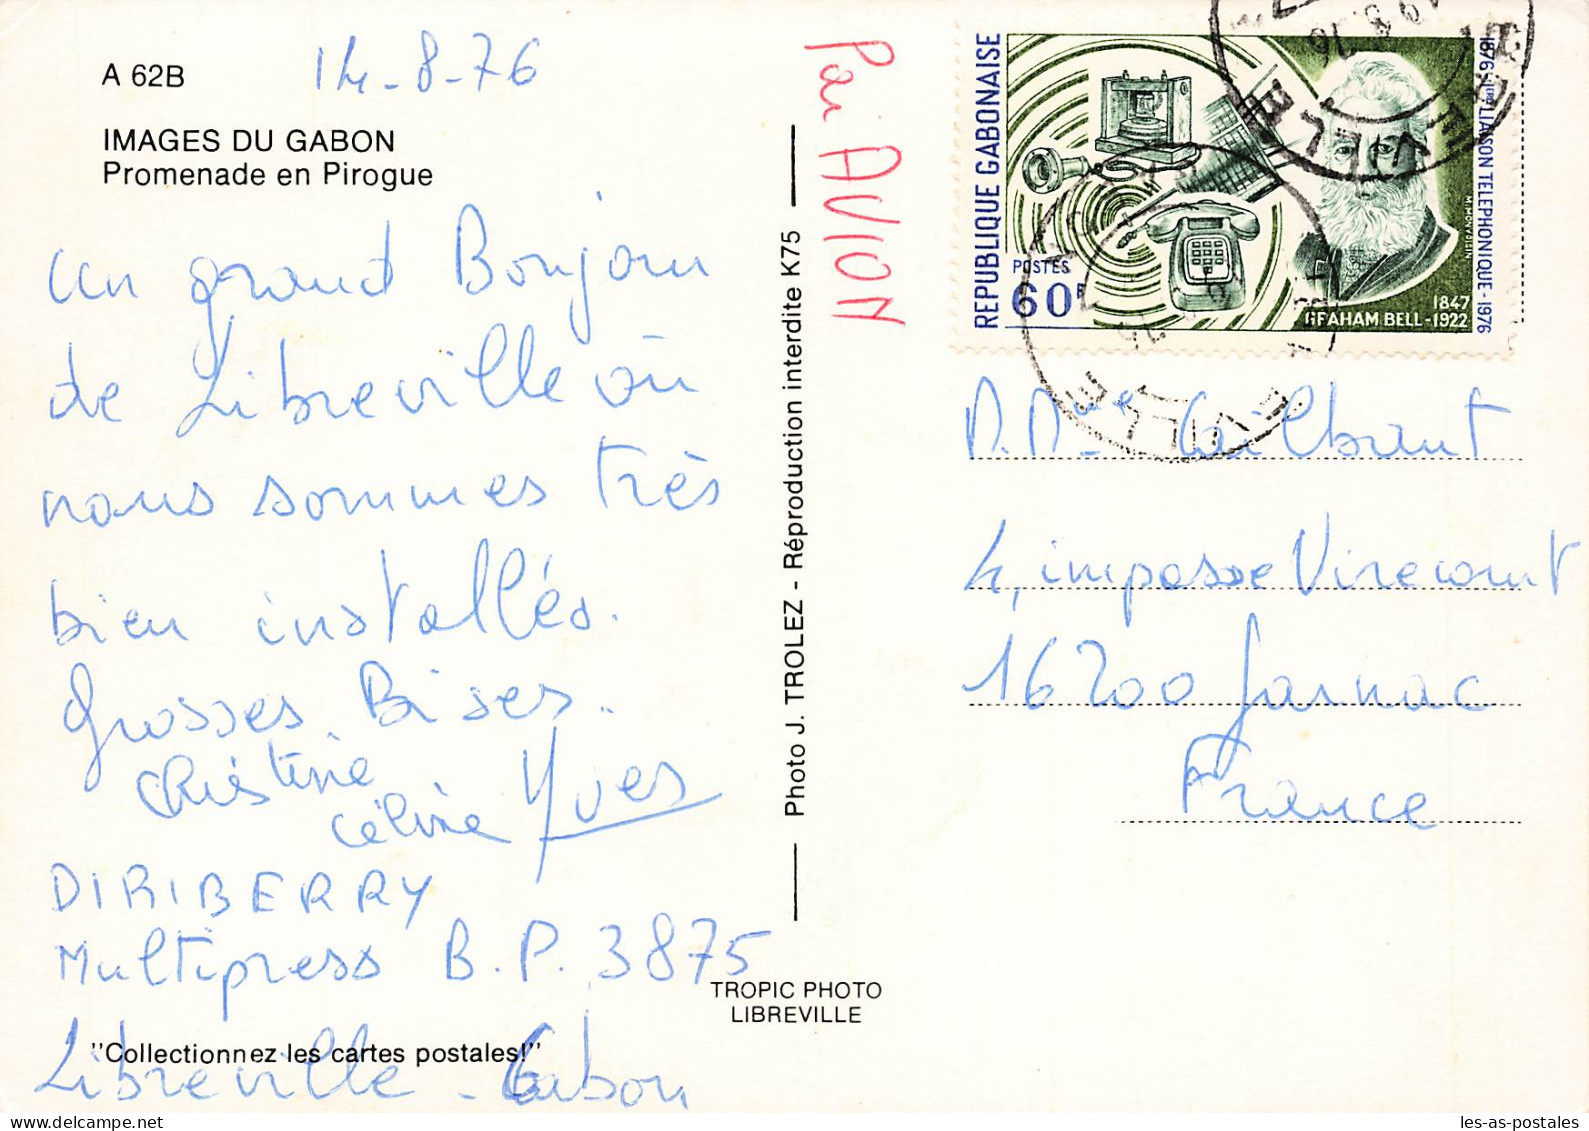 A 62B
14-8-76
IMAGES DU GABON
Promenade en Pirogue
un grand Bonjour
de Libreville où
nous sommes très
bien installés.
Grosses Bises.
Christine
Céline Yves
DIRIBERRY
Multipress B.P. 3875
Libreville - Gabon
"Collectionnez les cartes postales!"
Photo J. TROLEZ - Réproduction interdite K75
TROPIC PHOTO
LIBREVILLE
Par AVION
REPUBLIQUE GABONAISE
POSTES
60F
1847
GRAHAM BELL - 1922
1876 - 1ère LIAISON TELEPHONIQUE - 1976
M. MONVOISIN
M. Mme Cailbaut
4, impasse Virecourt
16200 Jarnac
France
les-as-postales